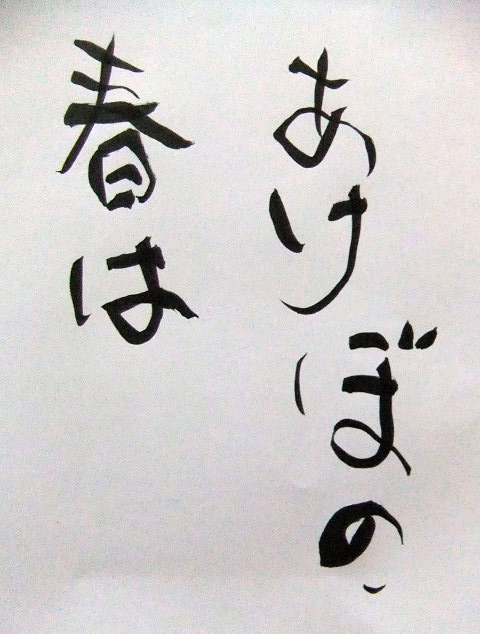 春は
あけぼの